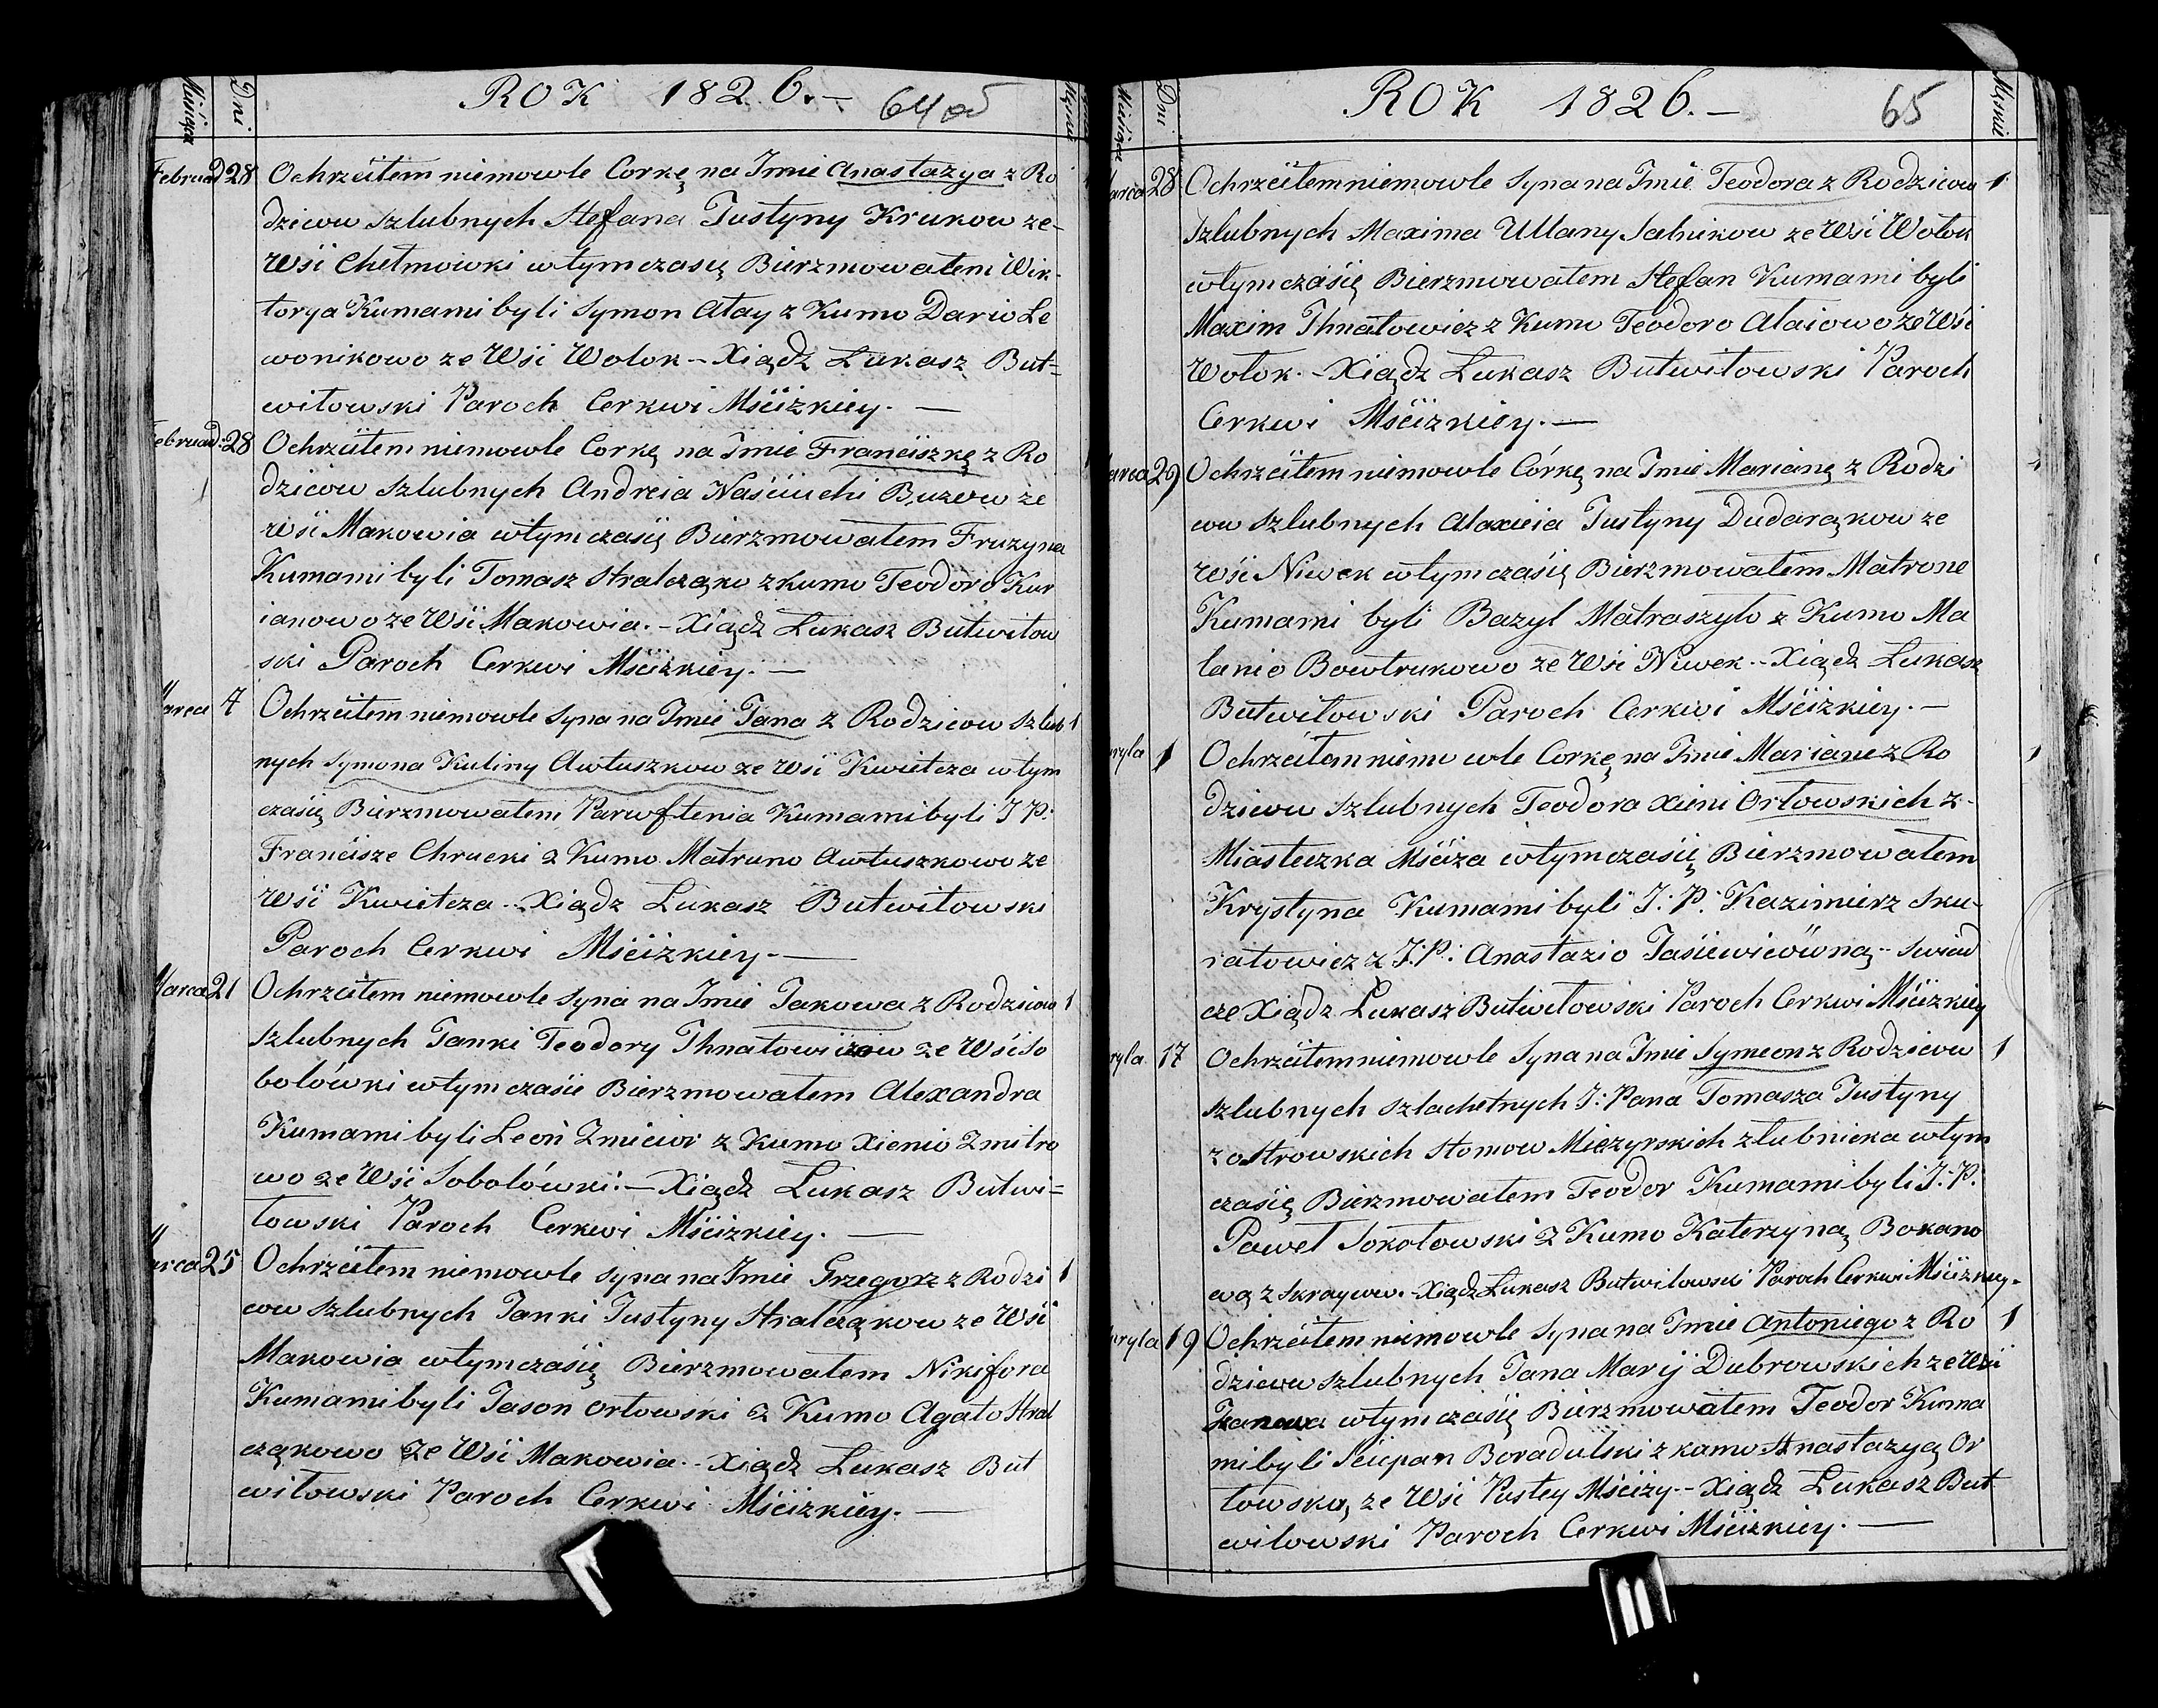 Miesiąca Dni ROK 1826.— 64 об Męskie
Februar: 28 Ochrzciłem niemowle Corkę na Imie Anastazya z Ro
dzicow szlubnych Stefana Justyny Krukow ze-
Wsi Chełmowki wtymczasię Bierzmowałem Wik-
torya Kumami byli Symon Ałay z Kumo Dario Le
wonikowo ze Wsi Wołok – Xiądz Łukasz But=
wiłowski Paroch Cerkwi Mściżkiey. —
Februar: 28 Ochrzciłem niemowle Corkę na Imie Franciszkę z Ro
dzicow szlubnych Andreia Naściuchi Buzow ze
wsi Makowia wtymczasię Bierzmowałem Fruzyna
Kumami byli Tomasz Stralcząko z kumo Teodoro Kur
ianowo ze Wsi Makowia. – Xiądz Łukasz Butwiłow
ski Paroch Cerkwi Mściżkiey. —
Marca 7 Ochrzciłem niemowle Syna na Imie Jana z Rodzicow szlub 1
nych Symona Kuliny Awtuszkow ze wsi Kwietcza wtym
czasię Bierzmowałem Parwftenia Kumami byli J P:
Francisze Chrucki z Kumo Matruno Awtuszkowo ze
Wsi Kwietcza. – Xiądz Łukasz Butwiłowski
Paroch Cerkwi Mściżkiey. —
Marca 21 Ochrzciłem niemowle Syna na Imie Jakowa z Rodzicow 1
szlubnych Janki Teodory Ihnatowiczow ze Wsi So
bolówki wtymczasie Bierzmowałem Alexandra
Kumami byli Leoń Zmiewi z Kumo Xienio Zmitro
wo ze Wsi Sobolówki. – Xiądz Łukasz Butwi=
łowski Paroch Cerkwi Mściżkiey. —
Marca 25 Ochrzciłem niemowle syna na Imie Grzegorz z Rodzi 1
cow szlubnych Janki Justyny Stralcząkow ze Wsi
Makowia wtymczasię Bierzmowałem Nikifora
Kumami byli Jason Orłowski z Kumo Agato Stral
cząkowo ze Wsi Makowia. – Xiądz Łukasz But
wiłowski Paroch Cerkwi Mściżkiey. —
Miesiąca Dni ROK 1826.— 65 Męskie
Marca 28 Ochrzciłem niemowle Syna na Imie Teodora z Rodzicow 1
szlubnych Maxima Ullany Salnikow ze Wsi Wołok
wtymczasię Bierzmowałem Stefan Kumami byli
Maxim Ihnatowicz z Kumo Teodoro Ałaiowo ze Wsi
Wołok. – Xiądz Łukasz Butwiłowski Paroch
Cerkwi Mściżkiey. —
Marca 29 Ochrzciłem niemowle Córkę na Imie Marianę z Rodzi
cow szlubnych Alaxieia Justyny Dudarąkow ze
wsi Niwek wtymczasię Bierzmowałem Matrone
Kumami byli Bazyl Matraszyło z Kumo Ma
lanio Bowtrukowo ze Wsi Niwek. – Xiądz Łukasz
Butwiłowski Paroch Cerkwi Mściżkiey. —
Apryla 1 Ochrzciłem niemowle Corkę na Imie Mariane z Ro 1
dzicow szlubnych Teodora Xieni Orłowskich z-
Miasteczka Mściża wtymczasię Bierzmowałem
Krystyna Kumami byli J: P: Kazimierz Sku-
ratowicz z J: P: Anastazio Jasiewicówną – Swiad
cze Xiądz Łukasz Butwiłowski Paroch Cerkwi Mściżkiey
Apryla 17 Ochrzciłem niemowle Syna na Imie Symeon z Rodzicow 1
szlubnych szlachetnych J: Pana Tomasza Justyny
z ostrowskich Stomow Miezyrskich złubnicka wtym
czasię Bierzmowałem Teodor Kumami byli J: P.
Paweł Sokołowski z Kumo Katerzyną Bokano
wą z skraywo. – Xiądz Łukasz Butwiłowski Paroch Cerkwi Mściżkiey.
Apryla 19 Ochrzciłem niemowle Syna na Imie Antoniego z Ro 1
dzicow szlubnych Jana Maryi Dubrowskich ze Wsi
wtymczasię Bierzmowałem Teodor Kuma
mi byli Sciepan Boradulski z kumo Anastazyą Or
łowską ze Wsi Pustey Mściży – Xiądz Łukasz But
wiłowski Paroch Cerkwi Mściżkiey. —